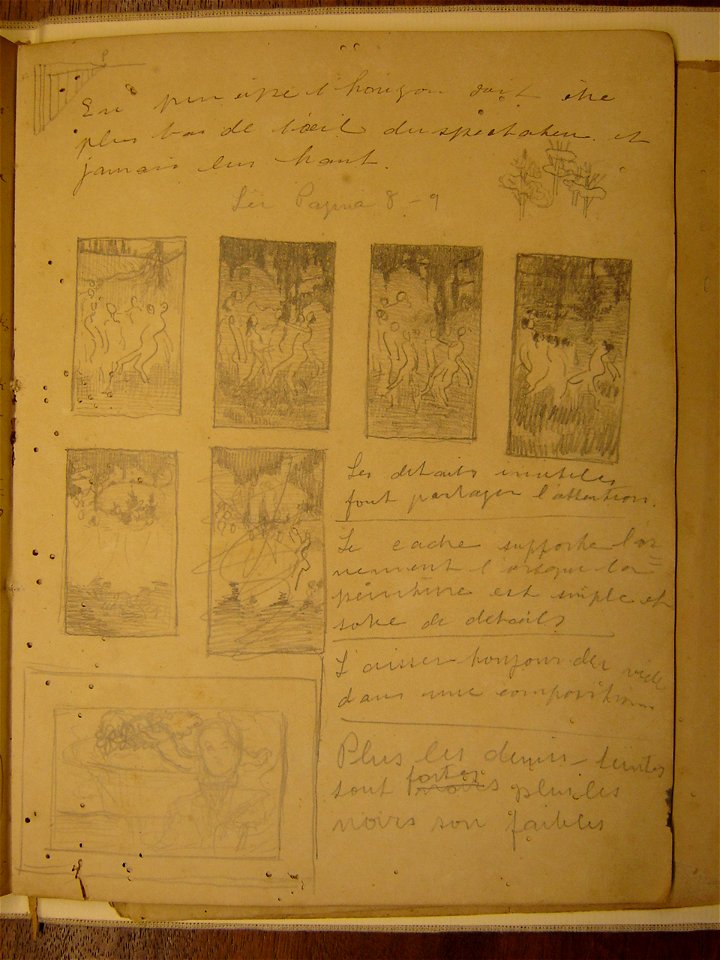 En principe l'horizon doit être
plus bas de l'oeil du spectateur et
jamais plus haut.
Pagina 8-9
Les details inutiles
font partager l'attention.
Le cadre supporte l'or
nement lorsque la
peinture est simple et
sobre de details
Laisser toujours des vide
dans une composition
Plus les demi-teintes
sont fortes plus les
noirs son faibles